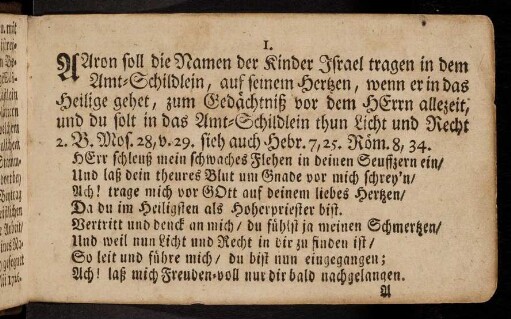 1.
AAron soll die Namen der Kinder Israel tragen in dem
Amt-Schildlein, auf seinem Hertzen, wenn er in das
Heilige gehet, zum Gedächtniß vor dem HErrn allezeit,
und du solt in das Amt-Schildlein thun Licht und Recht
2. B. Mos. 28, v. 29. sieh auch Hebr. 7, 25. Röm. 8, 34.
HErr schleuß mein schwaches Flehen in deinen Seuffzern ein/
Und laß dein theures Blut um Gnade vor mich schrey'n/
Ach! trage mich vor GOtt auf deinem liebes Hertzen/
Da du im Heiligsten als Hoherpriester bist.
Vertritt und denck an mich/ du fühlst ja meinen Schmertzen/
Und weil nun Licht und Recht in dir zu finden ist/
So leit und führe mich/ du bist nun eingegangen;
Ach! laß mich Freuden-voll nur dir bald nachgelangen.
A